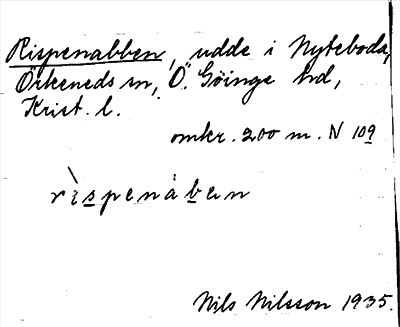 Rispenabben, udde i Nyteboda,
Örkeneds sn, Ö. Göinge hd,
Krist. l.
omkr. 200 m. N 109
rìspenàbɐn
Nils Nilsson 1935.